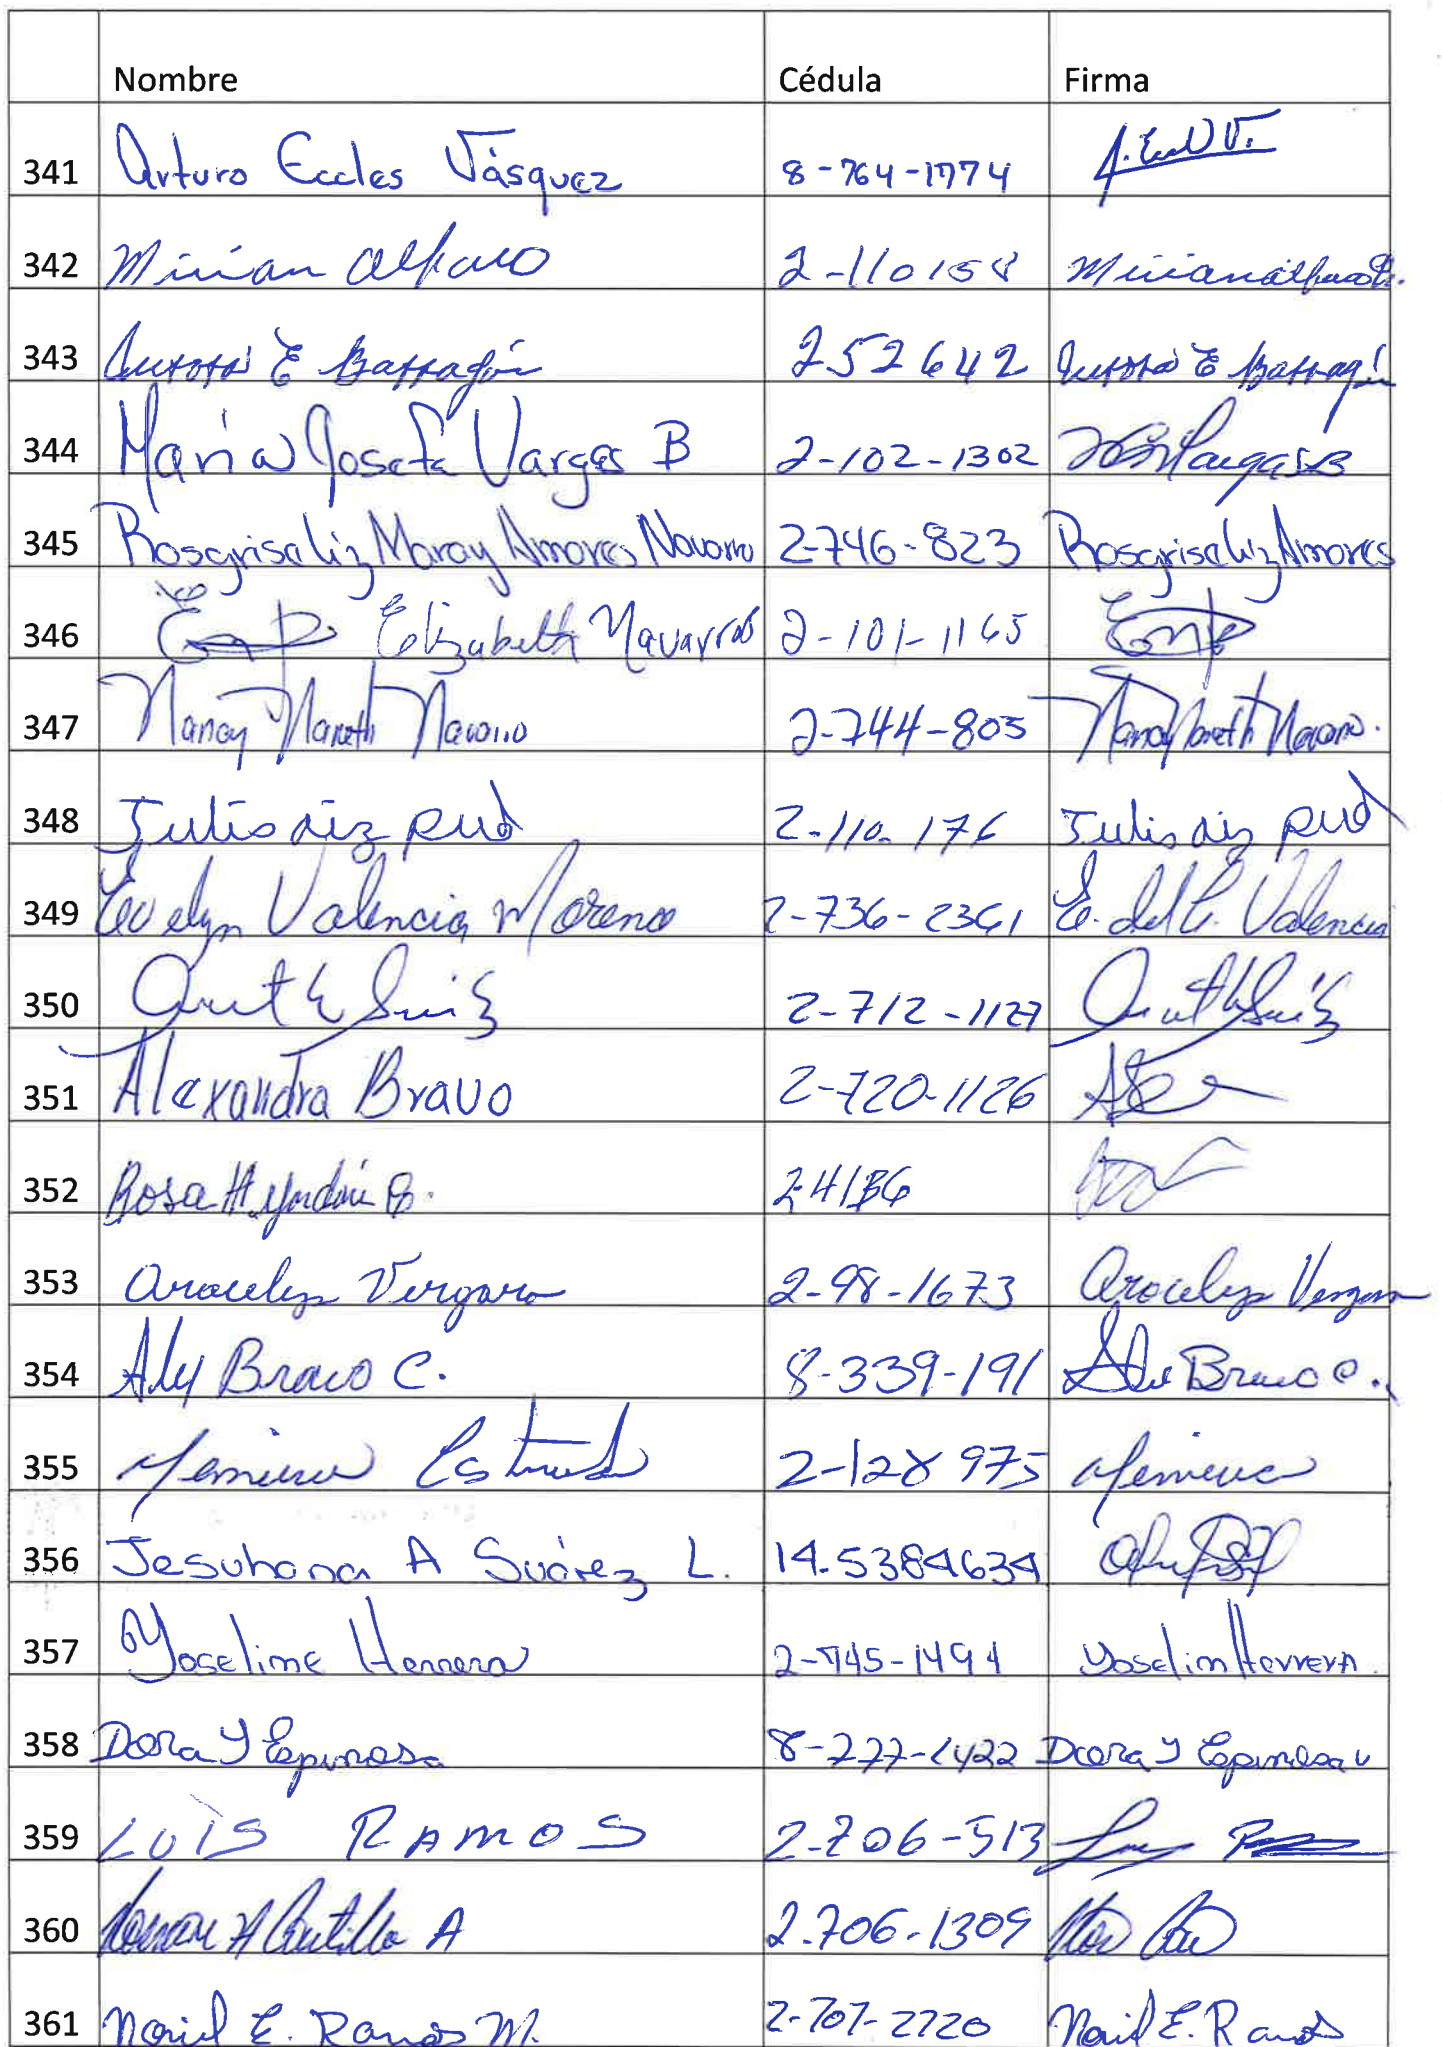 Nombre Cédula Firma
341 Arturo Eccles Vásquez 8-764-1774
342 Mirian Alfaro 2-110 158 Mirian Alfaro
343 E Barragán 2 52 642 E Barragán
344 María Josefa Vargas B 2-102-1302 Vargas B
345 Rosgrisaliz Maray Amores Navarro 2-746-823 Rosgrisaliz Amores
346 Elizabeth Navarro 2-101-1165
347 Nancy Nareth Navarro 2-744-805 Nancy Nareth Navarro.
348 Rud 2-110-176 Rud
349 Evelyn Valencia Moreno 2-736-2361 E. del C. Valencia
350 2-712-1127
351 Alexandra Bravo 2-720-1126
352 Rosa H. B.
353 Aracelys Vergara 2-98-1673 Aracelys Vergara
354 Aly Bravo C. 8-339-191 Bravo C.
355 Estrada 2-128 975
356 Jesuhana A Suárez L. 14-5384634
357 Yoseline Herrera 2-745-1494 Yoselin Herrera
358 Dora Y Espinosa 8-777-1422 Dora Y Espinosa
359 LUIS RAMOS 2-706-513
360 A 2-706-1309
361 E. Ramos M. 2-707-2220 E. Ramos